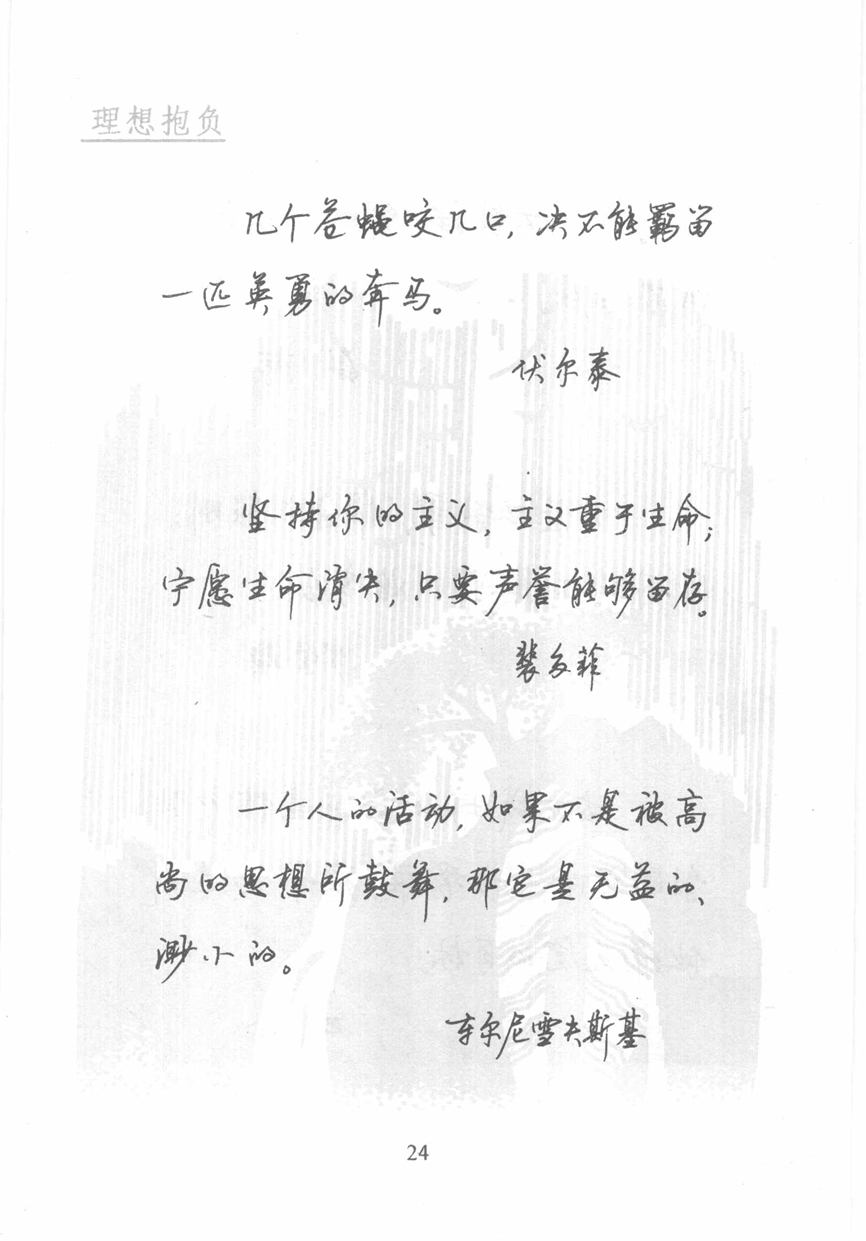 理想抱负
几个苍蝇咬几口，决不能羁留
一匹英勇的奔马。
伏尔泰
坚持你的主义，主义重于生命；
宁愿生命消失，只要声誉能够留存。
裴多菲
一个人的活动，如果不是被高
尚的思想所鼓舞，那它是无益的、
渺小的。
车尔尼雪夫斯基
24